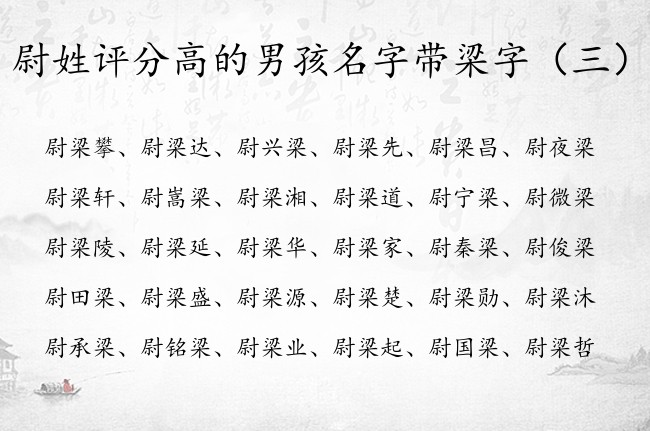 尉姓评分高的男孩名字带梁字（三）
尉梁攀、尉梁达、尉兴梁、尉梁先、尉梁昌、尉夜梁
尉梁轩、尉嵩梁、尉梁湘、尉梁道、尉宁梁、尉微梁
尉梁陵、尉梁延、尉梁华、尉梁家、尉秦梁、尉俊梁
尉田梁、尉梁盛、尉梁源、尉梁楚、尉梁勋、尉梁沐
尉承梁、尉铭梁、尉梁业、尉梁起、尉国梁、尉梁哲